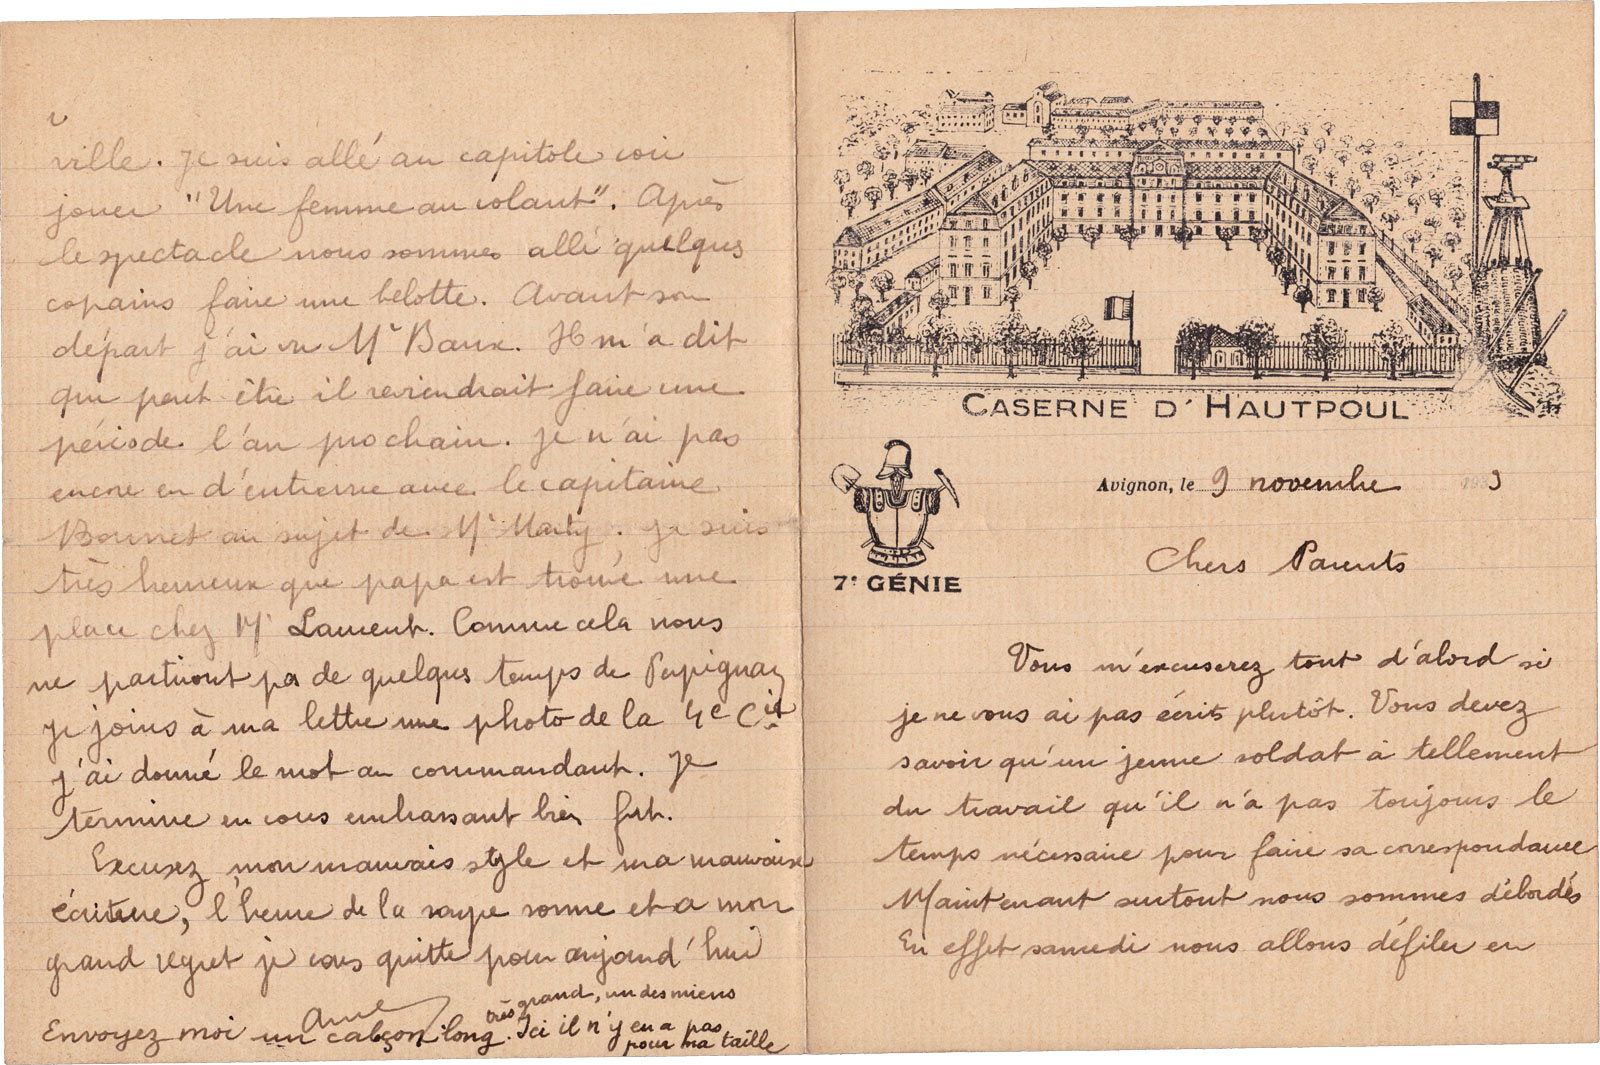 CASERNE D'HAUTPOUL
7e GÉNIE
Avignon, le 9 novembre 1933
Chers Parents
Vous m'excuserez tout d'abord si
je ne vous ai pas écrits plutôt. Vous devez
savoir qu'un jeune soldat à tellement
du travail qu'il n'a pas toujours le
temps nécessaire pour faire sa correspondance
Maintenant surtout nous sommes débordés
En effet samedi nous allons défiler en
ville. Je suis allé au capitole voir
jouer "Une femme au volant". Après
le spectacle nous sommes allé quelques
copains faire une belotte. Avant son
départ j'ai vu Mr Baux. Il m'a dit
que peut être il reviendrait faire une
période l'an prochain. Je n'ai pas
encore eu d'entrevue avec le capitaine
Bonnet au sujet de Mr Marty. Je suis
très heureux que papa est trouvé une
place chez Mr Laurent. Comme cela nous
ne partiront pas de quelques temps de Perpignan
Je joins à ma lettre une photo de la 4e Cie
j'ai donné le mot au commandant. Je
termine en vous embrassant bien fort.
Excusez mon mauvais style et ma mauvaise
écriture, l'heure de la soupe sonne et a mon
grand regret je vous quitte pour aujourd'hui
Envoyez moi un caleçon long très grand, un des miens
Ici il n'y en a pas
pour ma taille